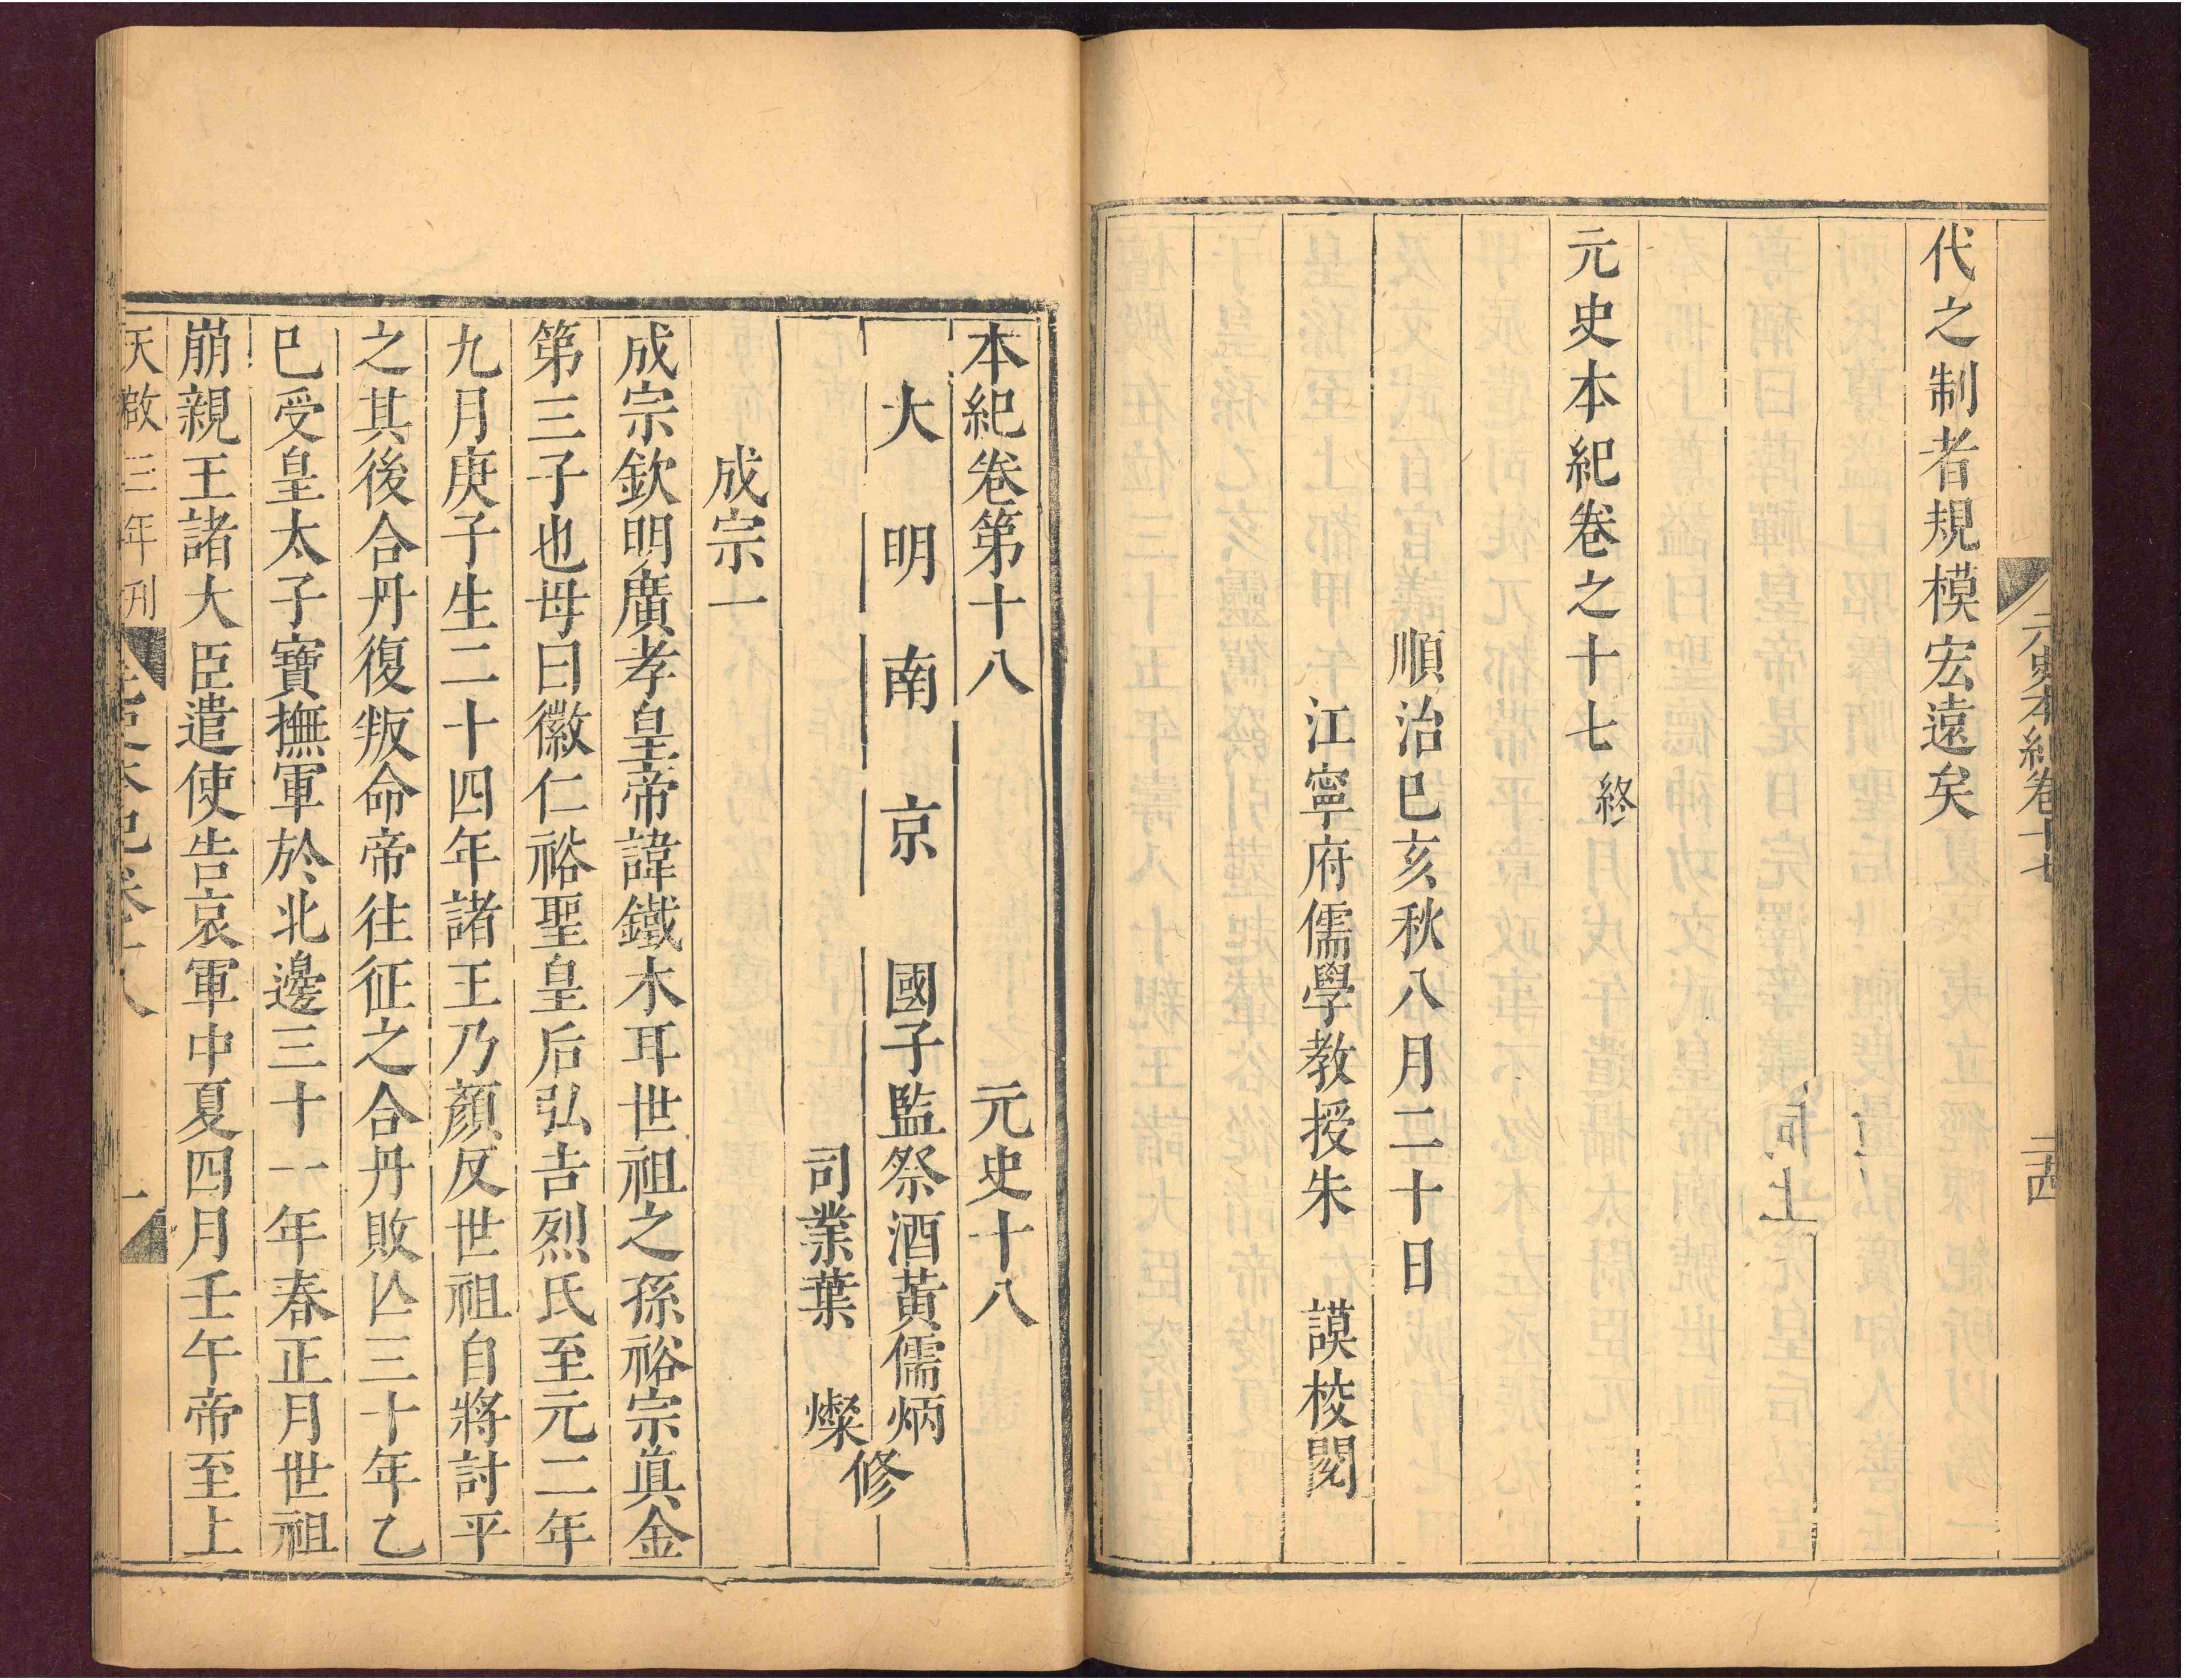 元史本紀卷十七
二十四
代之制者規模宏遠矣
元史本紀卷之十七終
順治己亥秋八月二十日
江寧府儒學教授朱 謨校閱
本紀卷第十八 元史十八
大明南京國子監祭酒黃儒炳
司業葉 燦
修
成宗一
成宗欽明廣孝皇帝諱鐵木耳世祖之孫裕宗眞金
第三子也母曰徽仁裕聖皇后弘吉烈氏至元二年
九月庚子生二十四年諸王乃顏反世祖自將討平
之其後合丹復叛命帝往征之合丹敗亾三十年乙
巳受皇太子寶撫軍於北邊三十一年春正月世祖
崩親王諸大臣遣使告哀軍中夏四月壬午帝至上
天啟三年刊
元史本紀卷十八
一